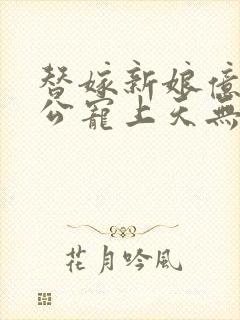 替嫁新娘億
公寵上天無
花月吟風